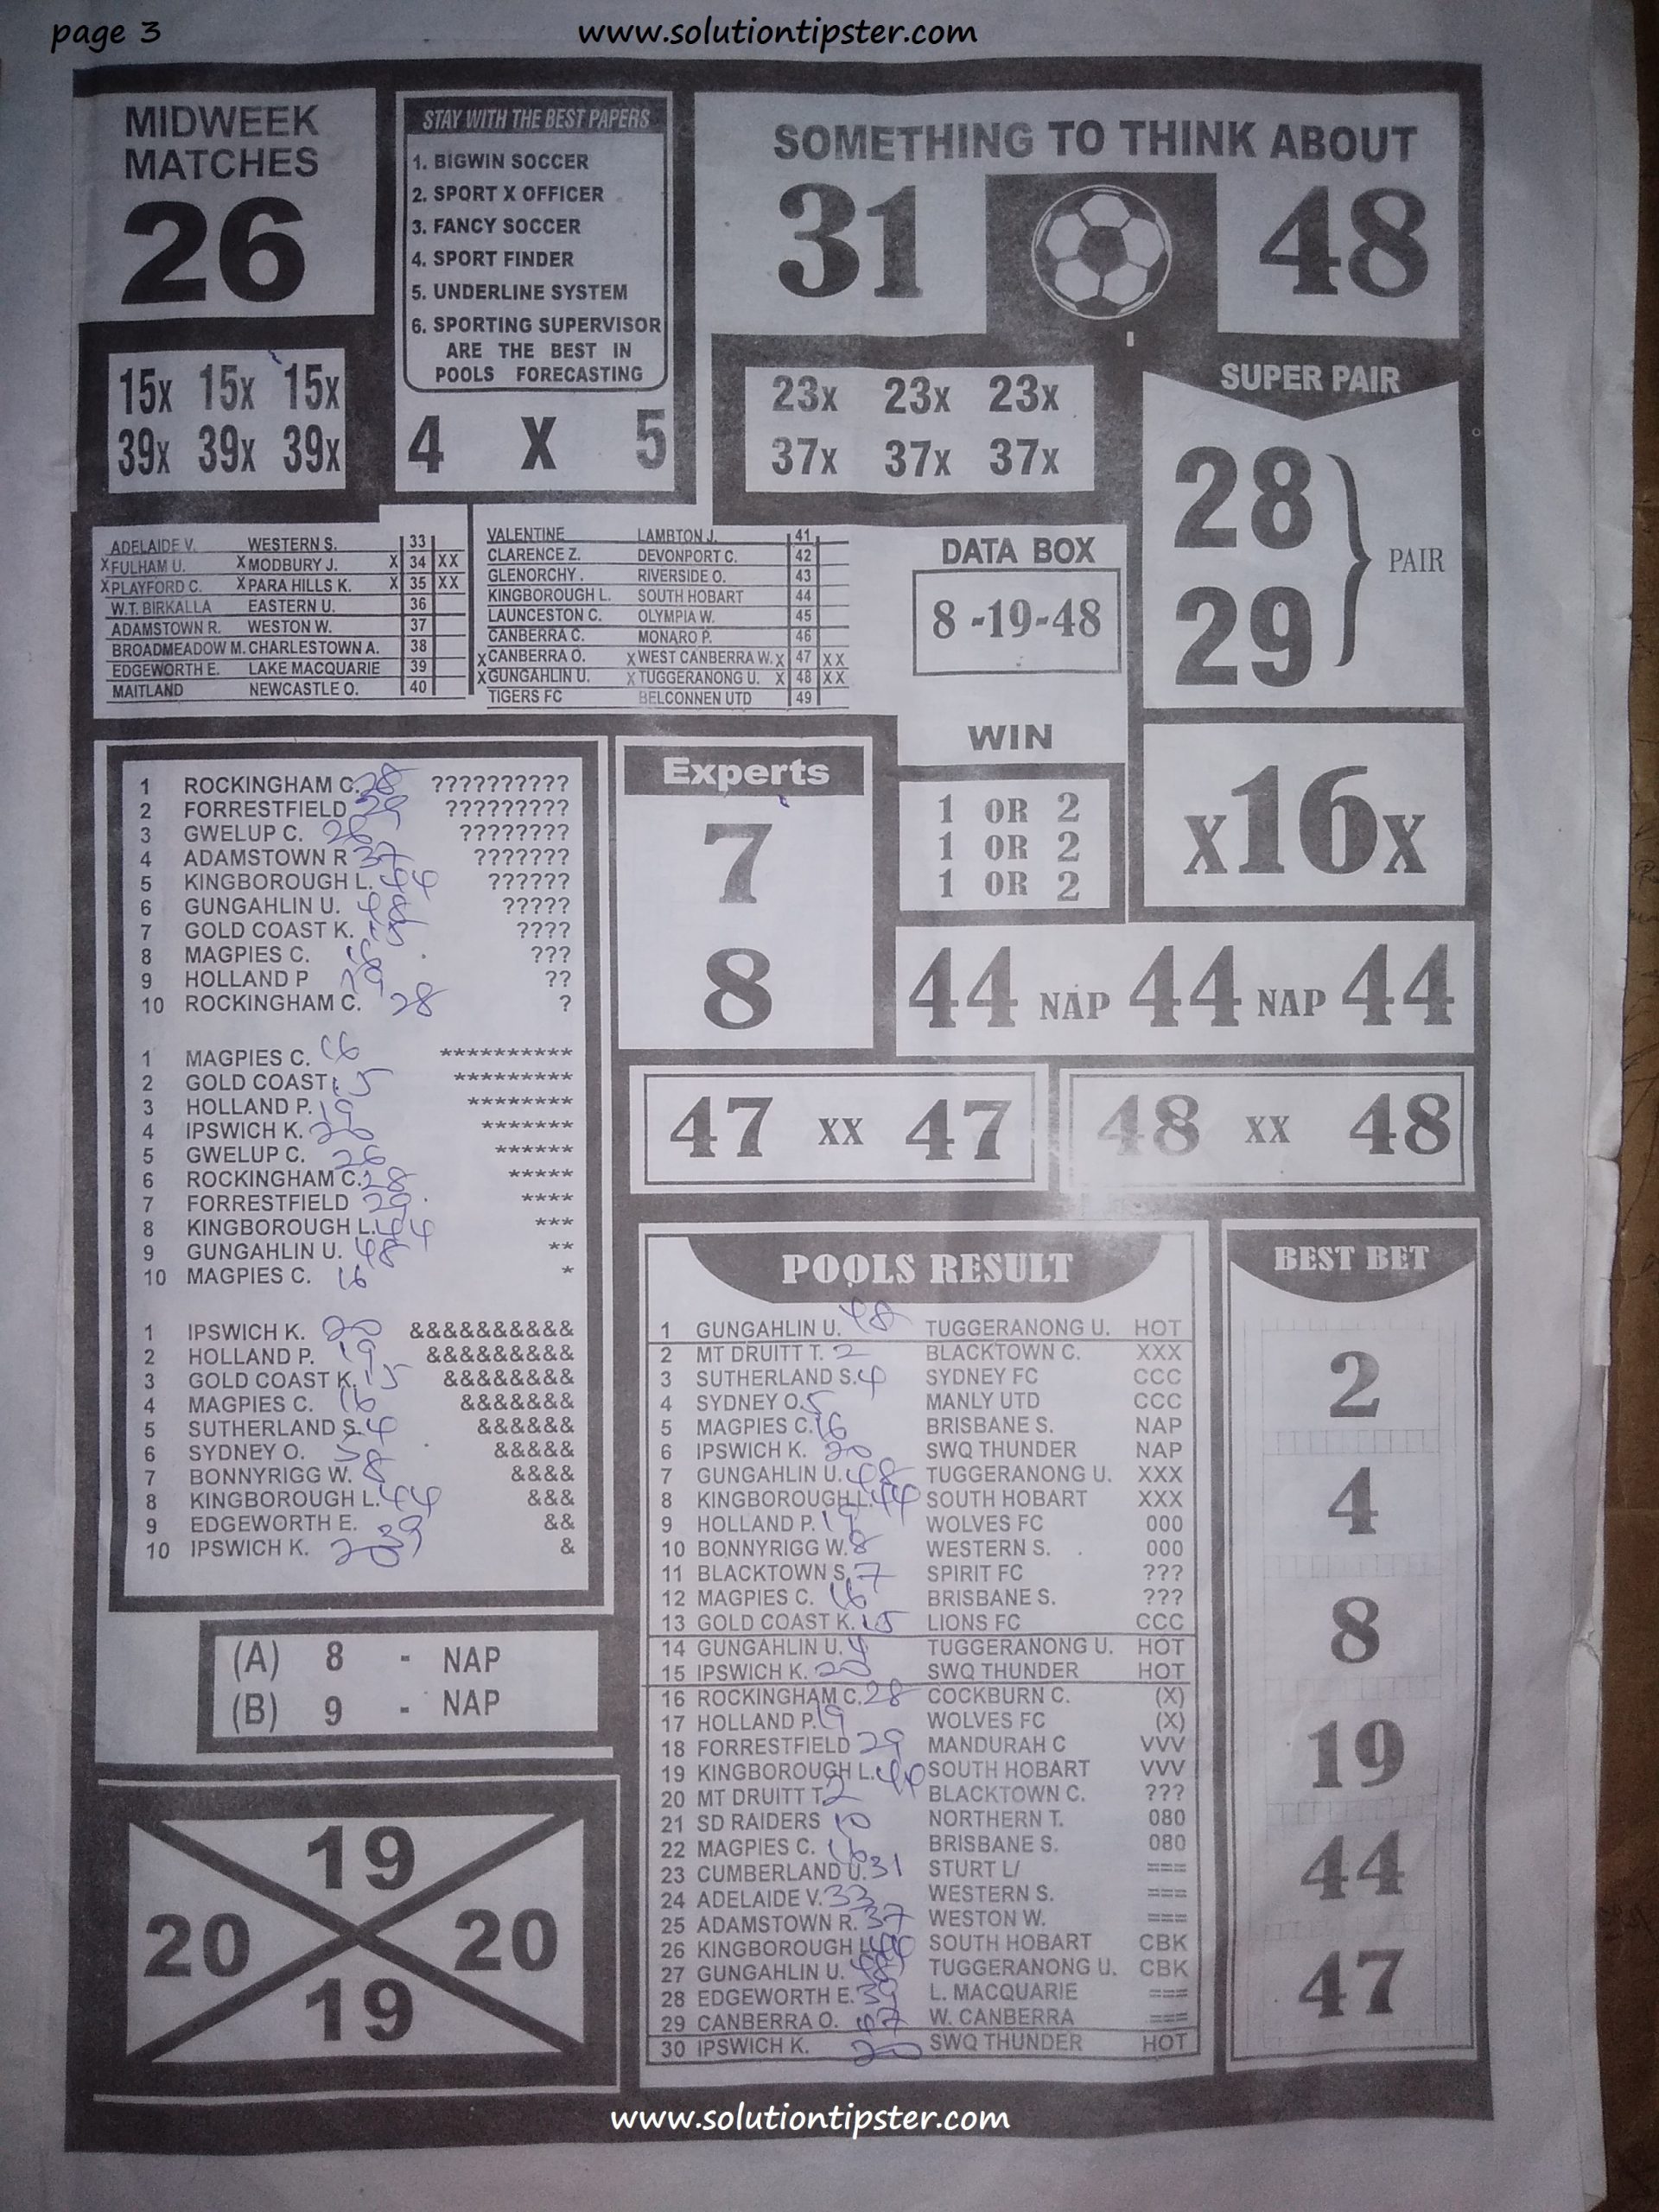 page 3
www.solutiontipster.com
MIDWEEK
MATCHES
26
STAY WITH THE BEST PAPERS
1. BIGWIN SOCCER
2. SPORT X OFFICER
3. FANCY SOCCER
4. SPORT FINDER
5. UNDERLINE SYSTEM
6. SPORTING SUPERVISOR
ARE THE BEST IN
POOLS FORECASTING
4 X 5
SOMETHING TO THINK ABOUT
31 48
15x 15x 15x
39x 39x 39x
23x 23x 23x
37x 37x 37x
SUPER PAIR
28
29
PAIR
ADELAIDE V. WESTERN S. 33
X FULHAM U. X MODBURY J. X 34 XX
X PLAYFORD C. X PARA HILLS K. X 35 XX
W.T. BIRKALLA EASTERN U. 36
ADAMSTOWN R. WESTON W. 37
BROADMEADOW M. CHARLESTOWN A. 38
EDGEWORTH E. LAKE MACQUARIE 39
MAITLAND NEWCASTLE O. 40
VALENTINE LAMBTON J. 41
CLARENCE Z. DEVONPORT C. 42
GLENORCHY. RIVERSIDE O. 43
KINGBOROUGH L. SOUTH HOBART 44
LAUNCESTON C. OLYMPIA W. 45
CANBERRA C. MONARO P. 46
X CANBERRA O. X WEST CANBERRA W. X 47 XX
X GUNGAHLIN U. X TUGGERANONG U. X 48 XX
TIGERS FC BELCONNEN UTD 49
DATA BOX
8 -19-48
WIN
1 OR 2
1 OR 2
1 OR 2
x16x
1 ROCKINGHAM C. 28 ??????????
2 FORRESTFIELD 29 ?????????
3 GWELUP C. 26 ????????
4 ADAMSTOWN R 37 ???????
5 KINGBOROUGH L. 44 ??????
6 GUNGAHLIN U. 48 ?????
7 GOLD COAST K. ????
8 MAGPIES C. ???
9 HOLLAND P 19 ??
10 ROCKINGHAM C. 28 ?
1 MAGPIES C. 16 **********
2 GOLD COAST 15 *********
3 HOLLAND P. 19 ********
4 IPSWICH K. 20 *******
5 GWELUP C. 26 ******
6 ROCKINGHAM C. 28 *****
7 FORRESTFIELD 29 ****
8 KINGBOROUGH L. 44 ***
9 GUNGAHLIN U. 48 **
10 MAGPIES C. 16 *
1 IPSWICH K. 20 &&&&&&&&&&
2 HOLLAND P. 19 &&&&&&&&&
3 GOLD COAST K. 15 &&&&&&&&
4 MAGPIES C. 16 &&&&&&&
5 SUTHERLAND S. 4 &&&&&&
6 SYDNEY O. 5 &&&&&
7 BONNYRIGG W. 8 &&&&
8 KINGBOROUGH L. 44 &&&
9 EDGEWORTH E. 39 &&
10 IPSWICH K. 20 &
Experts
7
8
44 NAP 44 NAP 44
47 XX 47
48 XX 48
(A) 8 - NAP
(B) 9 - NAP
19
20 20
19
POOLS RESULT
1 GUNGAHLIN U. 48 TUGGERANONG U. HOT
2 MT DRUITT T. 2 BLACKTOWN C. XXX
3 SUTHERLAND S. 4 SYDNEY FC CCC
4 SYDNEY O. 5 MANLY UTD CCC
5 MAGPIES C. 16 BRISBANE S. NAP
6 IPSWICH K. 20 SWQ THUNDER NAP
7 GUNGAHLIN U. 48 TUGGERANONG U. XXX
8 KINGBOROUGH L. 44 SOUTH HOBART XXX
9 HOLLAND P. 19 WOLVES FC 000
10 BONNYRIGG W. 8 WESTERN S. 000
11 BLACKTOWN S. 7 SPIRIT FC ???
12 MAGPIES C. 16 BRISBANE S. ???
13 GOLD COAST K. 15 LIONS FC CCC
14 GUNGAHLIN U. TUGGERANONG U. HOT
15 IPSWICH K. 20 SWQ THUNDER HOT
16 ROCKINGHAM C. 28 COCKBURN C. (X)
17 HOLLAND P. 19 WOLVES FC (X)
18 FORRESTFIELD 29 MANDURAH C VVV
19 KINGBOROUGH L. 44 SOUTH HOBART VVV
20 MT DRUITT T. 2 BLACKTOWN C. ???
21 SD RAIDERS 10 NORTHERN T. 080
22 MAGPIES C. 16 BRISBANE S. 080
23 CUMBERLAND U. 31 STURT L/ ===
24 ADELAIDE V. 33 WESTERN S. ===
25 ADAMSTOWN R. 37 WESTON W. ===
26 KINGBOROUGH L. 44 SOUTH HOBART CBK
27 GUNGAHLIN U. 48 TUGGERANONG U. CBK
28 EDGEWORTH E. 39 L. MACQUARIE ===
29 CANBERRA O. 47 W. CANBERRA ===
30 IPSWICH K. 20 SWQ THUNDER HOT
BEST BET
2
4
8
19
44
47
www.solutiontipster.com